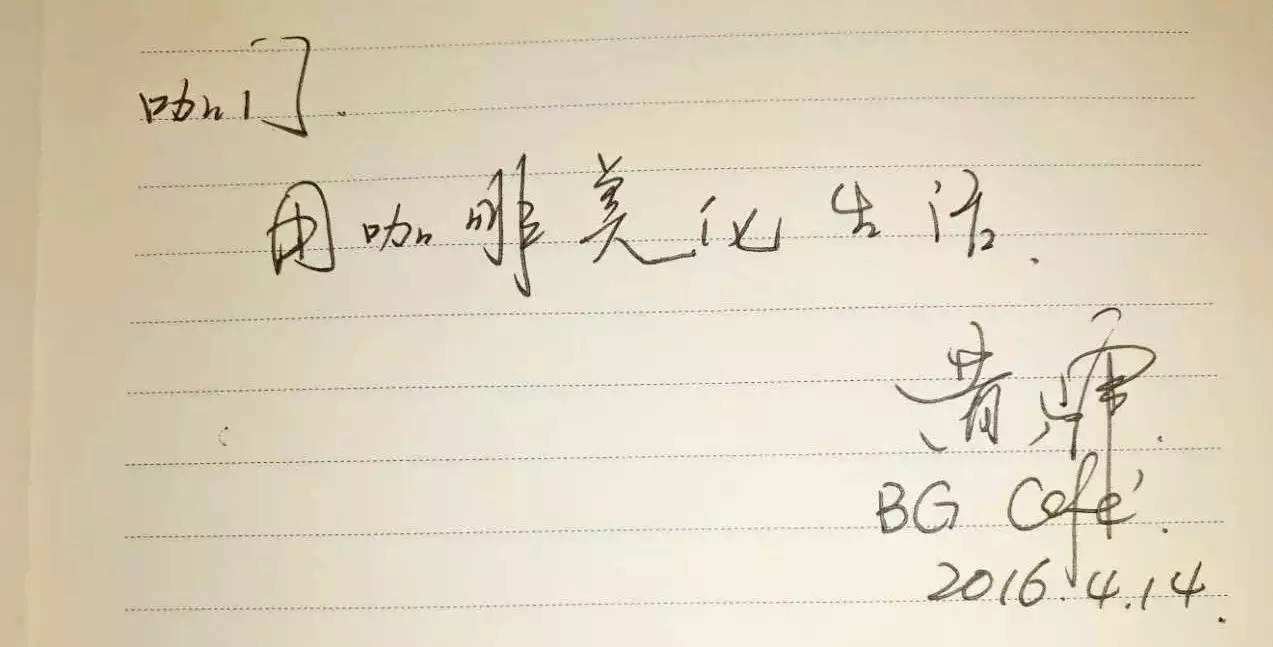 咖门.
用咖啡美化生活.
黄
BG Café.
2016.4.14.